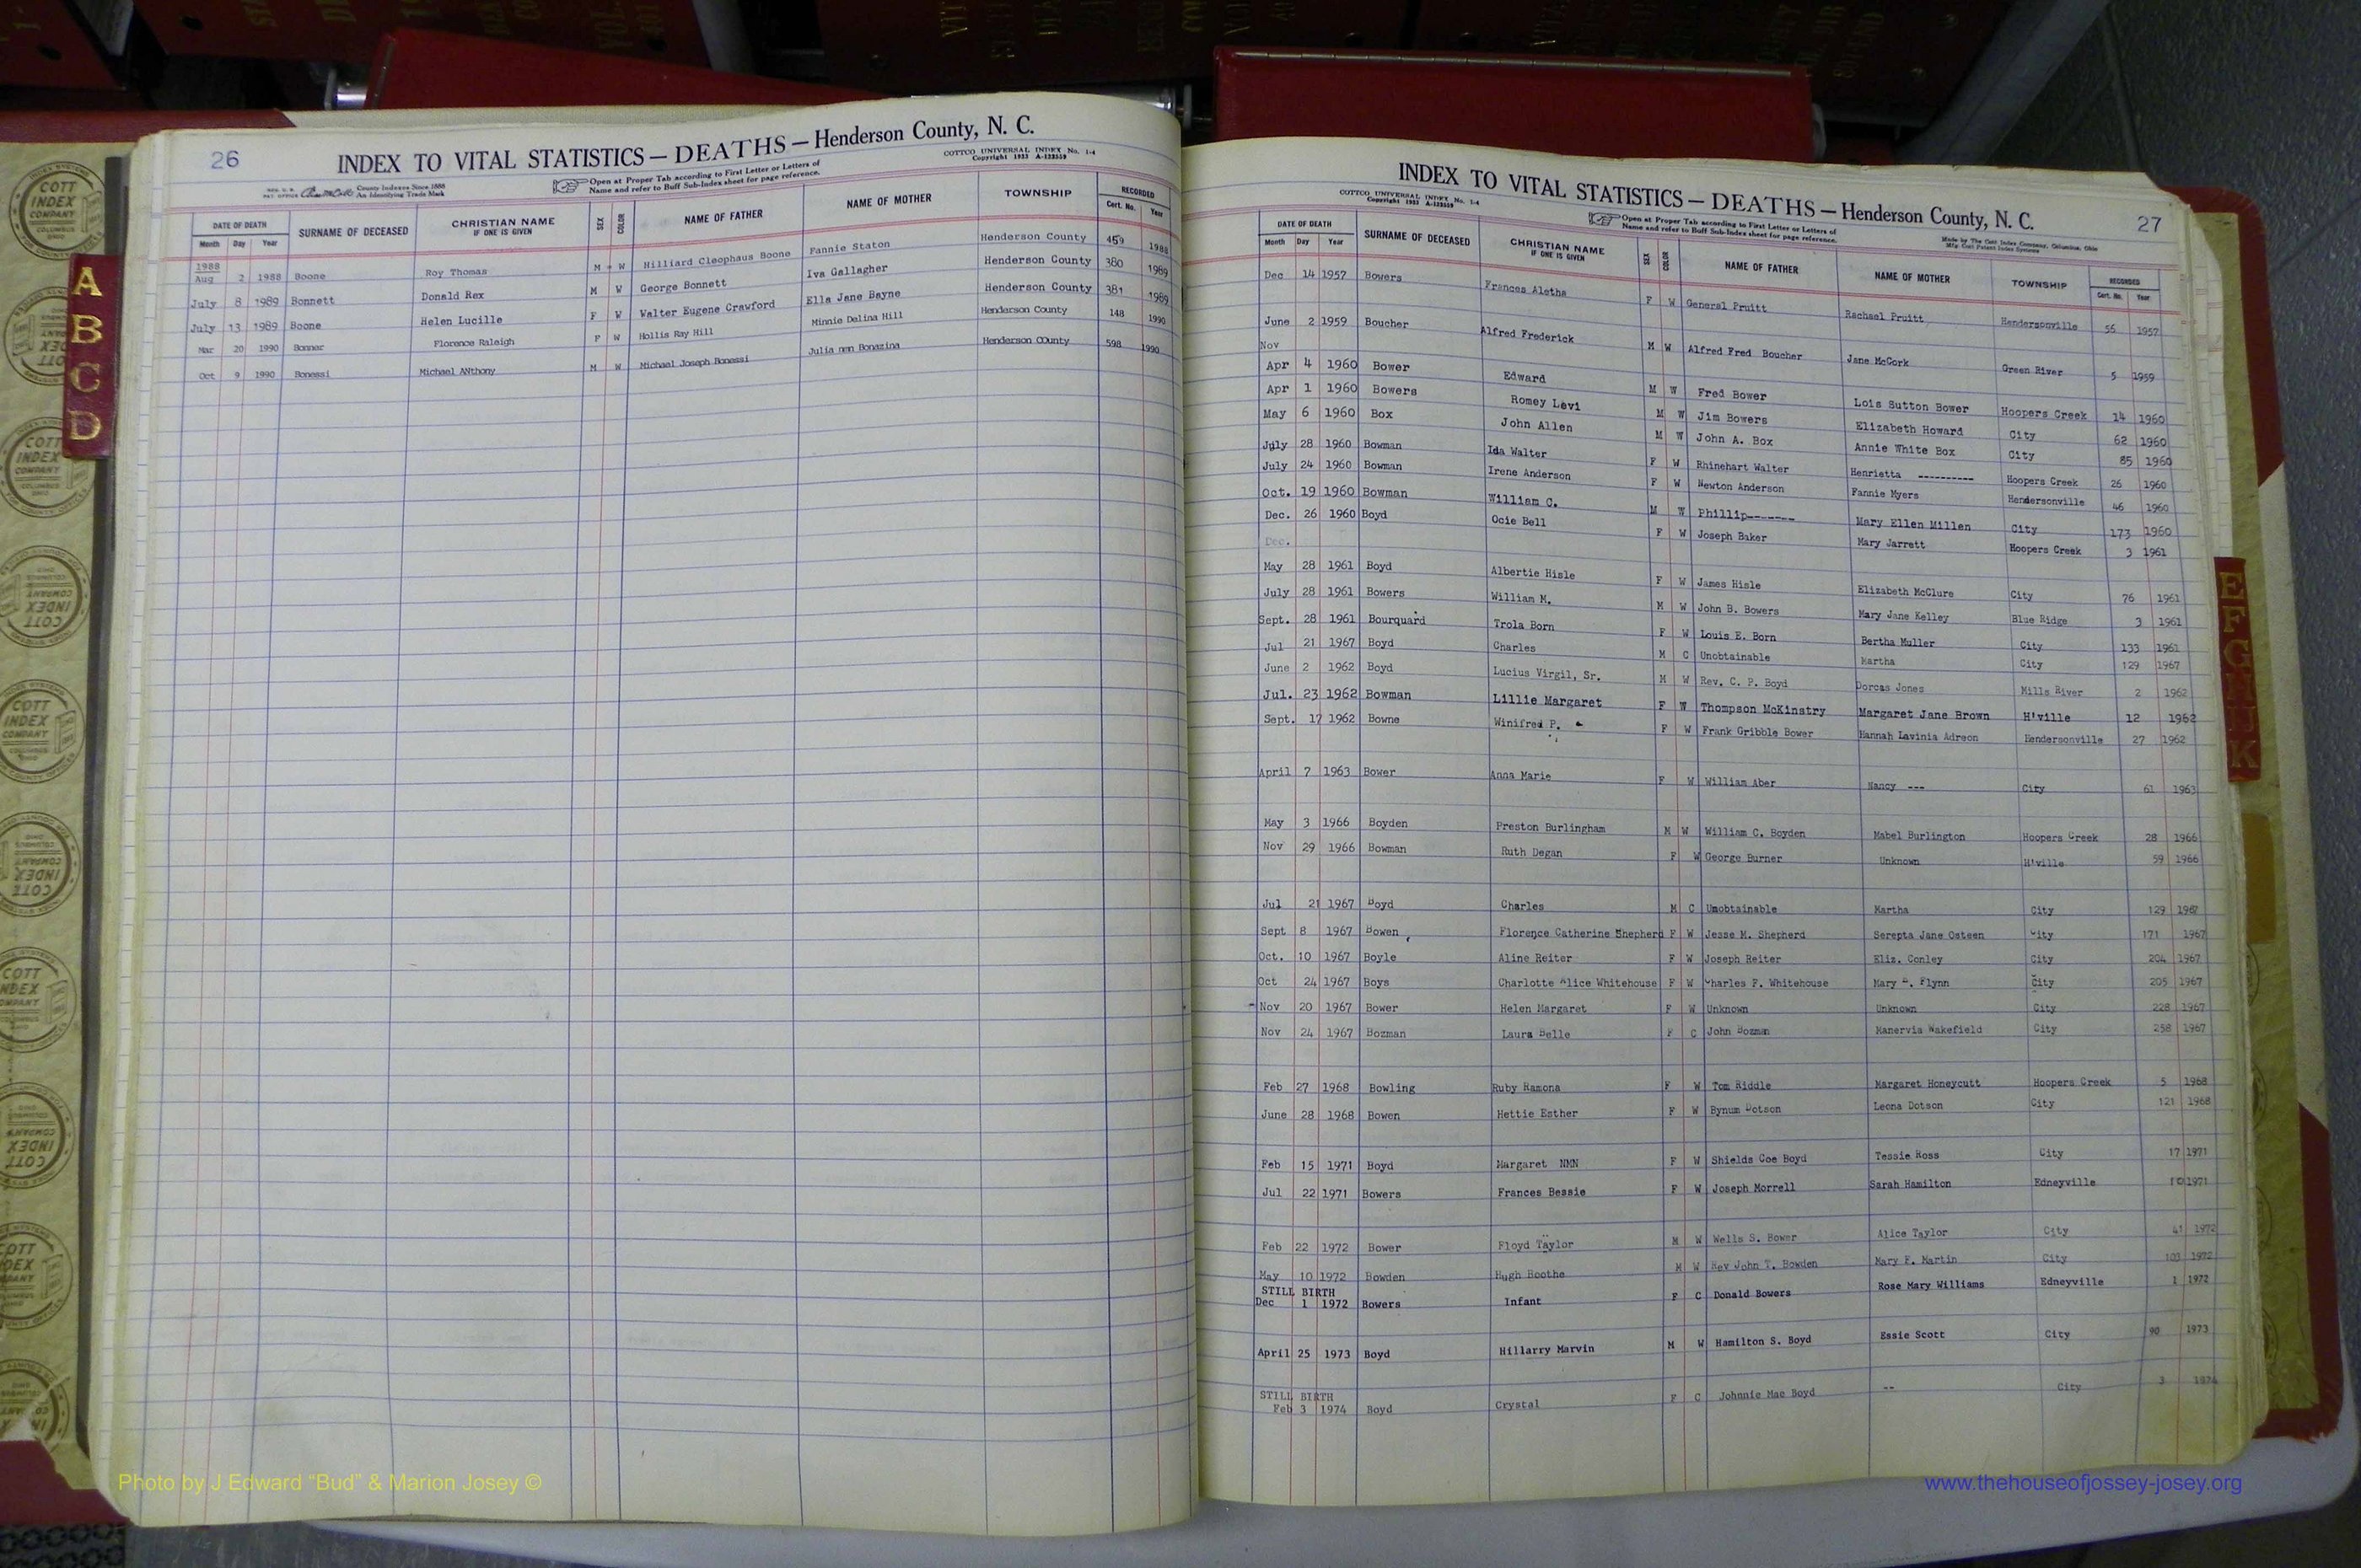 26
INDEX TO VITAL STATISTICS — DEATHS — Henderson County, N. C.
COTTCO UNIVERSAL INDEX No. 1-4
Copyright 1933 A-123559
County Indexes Since 1888
An Identifying Trade Mark
Open at Proper Tab according to First Letter or Letters of
Name and refer to Buff Sub-Index sheet for page reference.
DATE OF DEATH SURNAME OF DECEASED CHRISTIAN NAME IF ONE IS GIVEN SEX COLOR NAME OF FATHER NAME OF MOTHER TOWNSHIP RECORDED
Month Day Year Cert. No. Year
1988
Aug 2 1988 Boone Roy Thomas M W Hilliard Cleophaus Boone Fannie Staton Henderson County 459 1988
July 8 1989 Bonnett Donald Rex M W George Bonnett Iva Gallagher Henderson County 380 1989
July 13 1989 Boone Helen Lucille F W Walter Eugene Crawford Ella Jane Bayne Henderson County 381 1989
Mar 20 1990 Bonner Florence Raleigh F W Hollis Ray Hill Minnie Delina Hill Henderson County 148 1990
Oct 9 1990 Bonessi Michael ANthony M W Michael Joseph Bonessi Julia nmn Bonazina Henderson COunty 598 1990
A
B
C
D
COTT INDEX COMPANY
Photo by J Edward “Bud” & Marion Josey ©
27
INDEX TO VITAL STATISTICS — DEATHS — Henderson County, N. C.
COTTCO UNIVERSAL INDEX No. 1-4
Copyright 1933 A-123559
Open at Proper Tab according to First Letter or Letters of
Name and refer to Buff Sub-Index sheet for page reference.
Made by The Cott Index Company, Columbus, Ohio
DATE OF DEATH SURNAME OF DECEASED CHRISTIAN NAME IF ONE IS GIVEN SEX COLOR NAME OF FATHER NAME OF MOTHER TOWNSHIP RECORDED
Month Day Year Cert. No. Year
Dec 14 1957 Bowers Frances Aletha F W General Pruitt Rachael Pruitt Hendersonville 56 1957
June 2 1959 Boucher Alfred Frederick M W Alfred Fred Boucher Jane McCork Green River 5 1959
Nov
Apr 4 1960 Bower Edward M W Fred Bower Lois Sutton Bower Hoopers Creek 14 1960
Apr 1 1960 Bowers Romey Levi M W Jim Bowers Elizabeth Howard City 62 1960
May 6 1960 Box John Allen M W John A. Box Annie White Box City 85 1960
July 28 1960 Bowman Ida Walter F W Rhinehart Walter Henrietta ---------- Hoopers Creek 26 1960
July 24 1960 Bowman Irene Anderson F W Newton Anderson Fannie Myers Hendersonville 46 1960
Oct. 19 1960 Bowman William C. M W Phillip------- Mary Ellen Millen City 173 1960
Dec. 26 1960 Boyd Ocie Bell F W Joseph Baker Mary Jarrett Hoopers Creek 3 1961
Dec.
May 28 1961 Boyd Albertie Hisle F W James Hisle Elizabeth McClure City 76 1961
July 28 1961 Bowers William M. M W John B. Bowers Mary Jane Kelley Blue Ridge 3 1961
Sept. 28 1961 Bourquard Trola Born F W Louis E. Born Bertha Muller City 133 1961
Jul 21 1967 Boyd Charles M C Unobtainable Martha City 129 1967
June 2 1962 Boyd Lucius Virgil, Sr. M W Rev. C. P. Boyd Dorcas Jones Mills River 2 1962
Jul. 23 1962 Bowman Lillie Margaret F W Thompson McKinstry Margaret Jane Brown H'ville 12 1962
Sept. 17 1962 Bowne Winifred P. F W Frank Gribble Bower Hannah Lavinia Adreon Hendersonville 27 1962
April 7 1963 Bower Anna Marie F W William Aber Nancy --- City 61 1963
May 3 1966 Boyden Preston Burlingham M W William C. Boyden Mabel Burlington Hoopers Creek 28 1966
Nov 29 1966 Bowman Ruth Degan F W George Burner Unknown H'ville 59 1966
Jul 21 1967 Boyd Charles M C Unobtainable Martha City 129 1967
Sept 8 1967 Bowen, Florence Catherine Shepherd F W Jesse M. Shepherd Serepta Jane Osteen City 171 1967
Oct. 10 1967 Boyle Aline Reiter F W Joseph Reiter Eliz. Conley City 204 1967
Oct 24 1967 Boys Charlotte Alice Whitehouse F W Charles F. Whitehouse Mary Flynn City 205 1967
Nov 20 1967 Bower Helen Margaret F W Unknown Unknown City 228 1967
Nov 24 1967 Bozman Laura Belle F C John Bozman Manervia Wakefield City 258 1967
Feb 27 1968 Bowling Ruby Ramona F W Tom Riddle Margaret Honeycutt Hoopers Creek 5 1968
June 28 1968 Bowen Hettie Esther F W Bynum Dotson Leona Dotson City 121 1968
Feb 15 1971 Boyd Margaret NMN F W Shields Coe Boyd Tessie Ross City 17 1971
Jul 22 1971 Bowers Frances Bessie F W Joseph Morrell Sarah Hamilton Edneyville 10 1971
Feb 22 1972 Bower Floyd Taylor M W Wells S. Bower Alice Taylor City 41 1972
May 10 1972 Bowden Hugh Boothe M W Rev John T. Bowden Mary F. Martin City 103 1972
STILL BIRTH
Dec 1 1972 Bowers Infant F C Donald Bowers Rose Mary Williams Edneyville 1 1972
April 25 1973 Boyd Hillarry Marvin M W Hamilton S. Boyd Essie Scott City 90 1973
STILL BIRTH
Feb 3 1974 Boyd Crystal F C Johnnie Mae Boyd -- City 3 1974
E
F
G
K
www.thehouseofjossey-josey.org